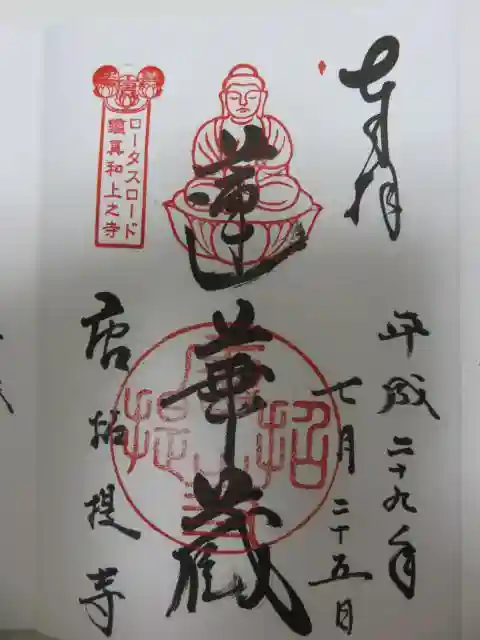 奉拝
平成二十九年
七月二十五日
蓮華蔵
ロータスロード
鑑真和上之寺
唐招提寺
唐招提寺